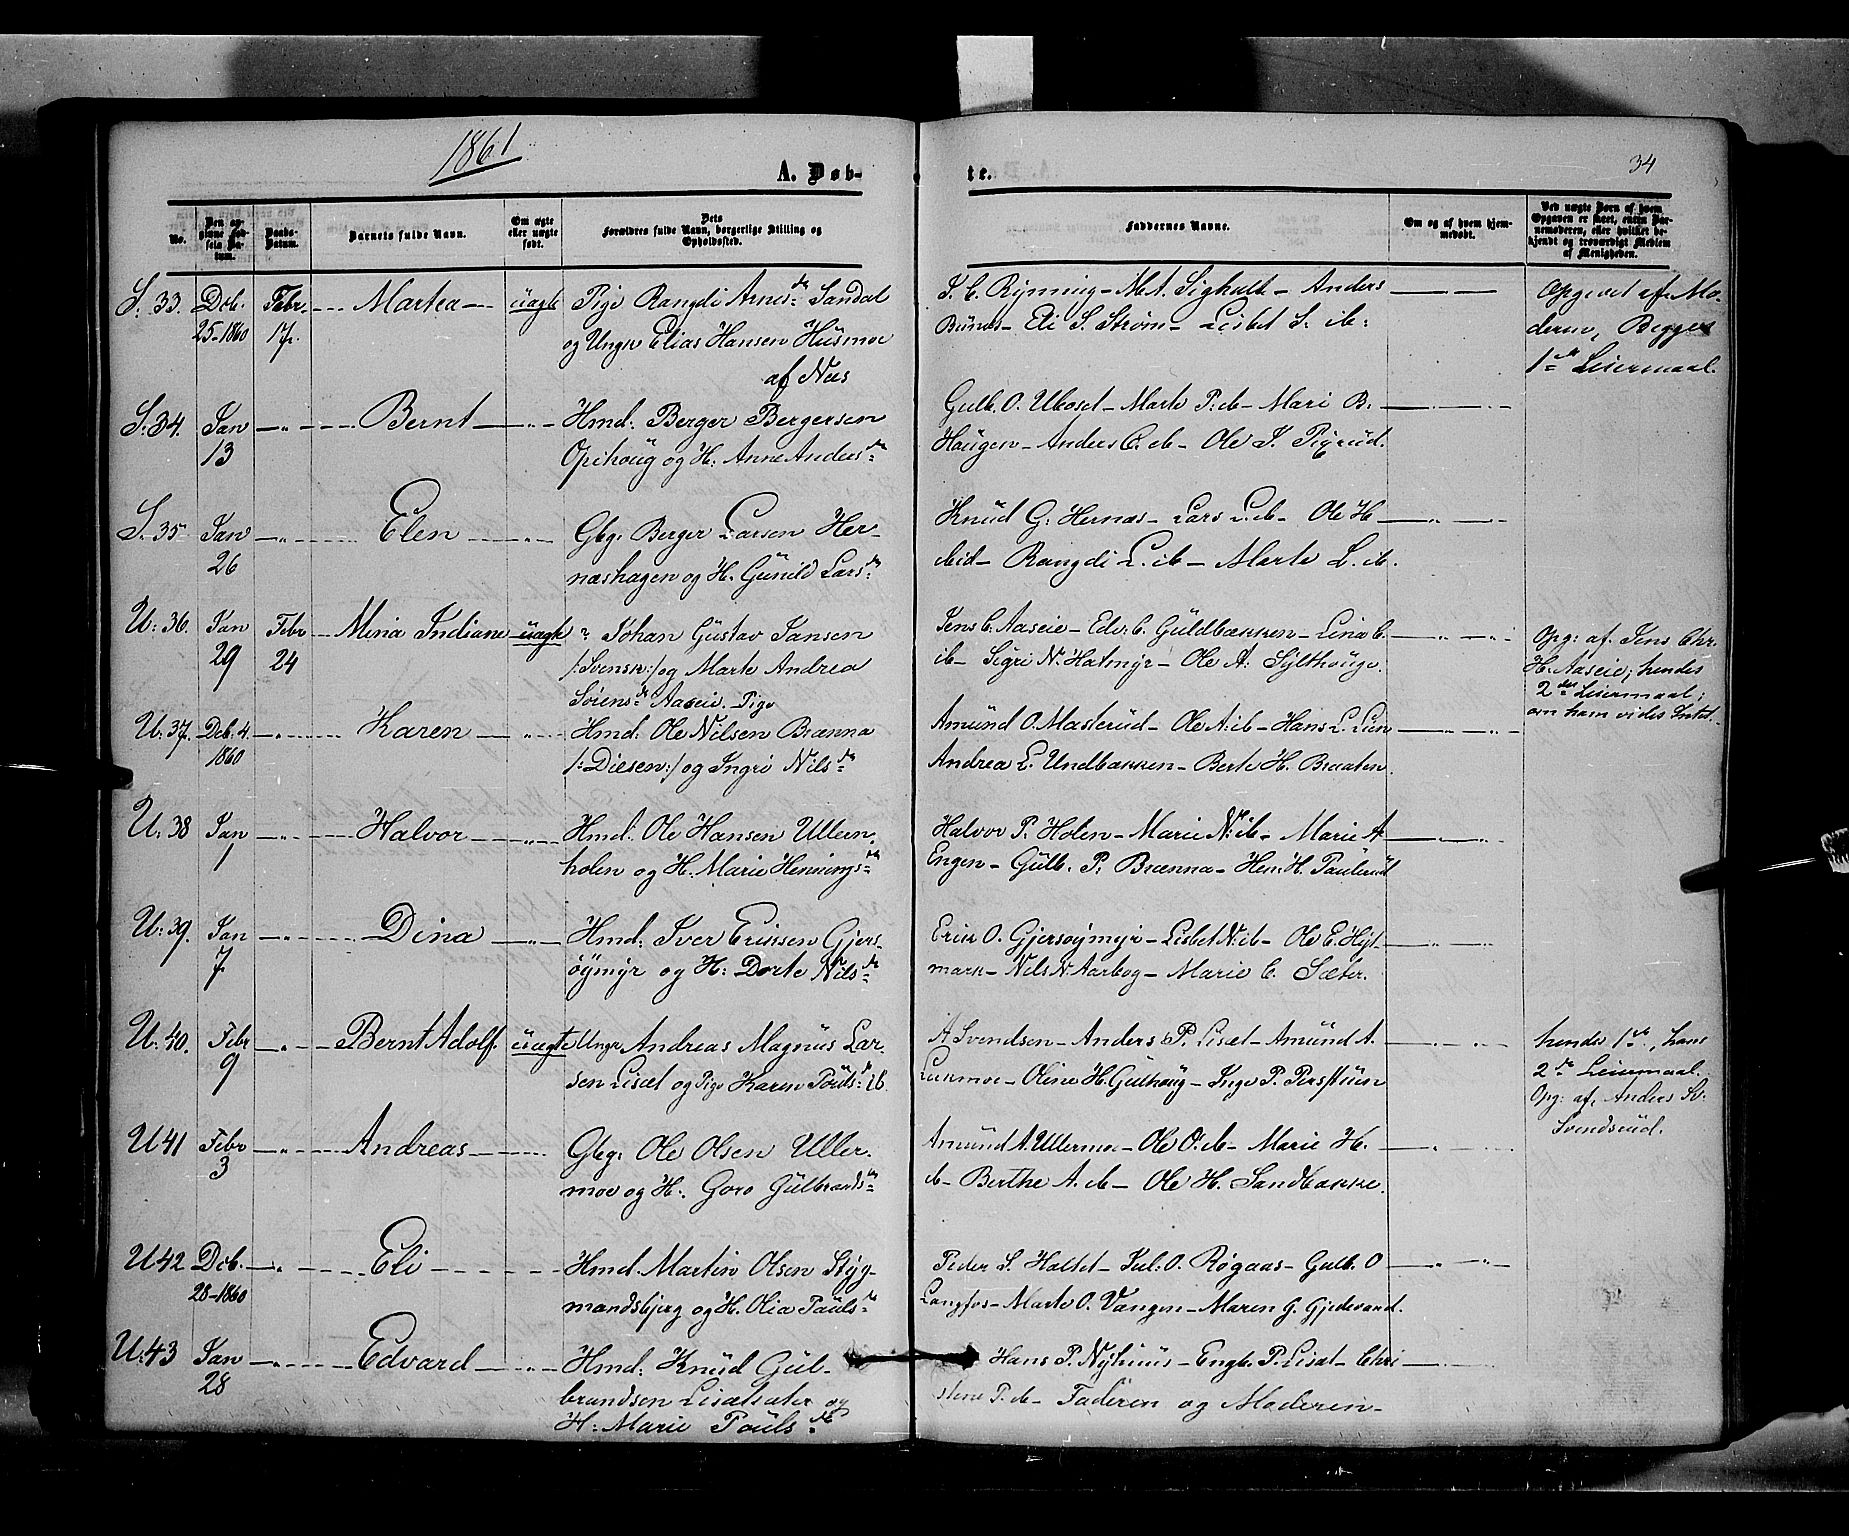 1861
A. Døb-
te.
34
No.
Den angivne Fødsels Datum.
Daabs-Datum.
Barnets fulde Navn.
Om ægte eller uægte født.
Dets Forældres fulde Navn, borgerlige Stilling og Opholdssted.
Faddernes Navne.
Om og af hvem hjemmedøbt.
Ved uægte Børn af hvem Opgaven er skeet, enten Barnemoderen, eller hvilket bekjendt og troværdigt Medlem af Menigheden.
S. 33. Dcb. 25-1860 Febr. 17. Martea uægte Pige Rangdi Arnesdr Sandal
og Ungk Elias Hansen Husmoe
af Næs
Anders
Eli S. Strøm - Lisbet S. ib:
Opgivet af Mo-
deren, Begges
1ste Leiermaal.
S. 34. Jan 13 Bernt Hmd: Berger Bergersen
Opihoug og H: Anne Andersdr
Gulb. O. Ulvset - Marte P: ib - Mari B.
Haugen - Anders C. ib - Ole
S. 35 Jan 26 Elen Gbg. Berger Larsen Her-
næshagen og H. Gunild Larsdr
Knud G. Hernæs - Lars L. ib - Ole H
ibid - Rangdi L. ib - Marte L. ib.
U: 36. Jan 29 Febr 24 Mina Indiane uægte Johan Gustav Jansen
/:Svensk:/ og Marte Andrea
Sørensdr Aaseie. Pige
Jens C. Aaseie - Edv. C. Guldbakken - Lina C.
ib - Sigri N. Hatmyr - Ole A. Sylthouge.
Opg: af Jens Chr.
H. Aaseie; hendes
2det Leiermaal;
om ham vides Intet.
U: 37. Dcb. 4. 1860 Karen Hmd: Ole Nilsen Brænna
/:Diesen:/ og Ingri Nilsdr
Amund O. Masterud - Ole A: ib - Hans L. Lien
Andrea L. Undbakken - Berte H. Braaten.
U: 38 Jan 1 Halvor Hmd: Ole Hansen Ullern-
holen og H. Marie Henningsdr
Halvor P. Holen - Marie N: ib - Marie A
Engen - Gulb. P. Brænna - Hen: H. Paulsrud
U: 39. Jan 7 Dina Hmd: Iver Ericksen Gjers-
øymyr og H: Dorte Nilsdr
Erik O. Gjersøymyr - Lisbet N: ib - Ole E. Hyt
mark - Nils N. Aarbog - Marie C. Sæter.
U: 40. Febr 9 Bernt Adolf. uægte Ungk Andreas Magnus Lar-
sen Lisæt og Pige Karen Poulsdr ib.
A Svendsen - Anders P. Lisæt - Amund A.
Lukmoe - Oline H. Gulhoug - Inge P. Perstuen
hendes 1ste, hans
2de Leiermaal.
Opg: af. Anders Sv.
Svendsrud.
U 41 Febr 3 Andreas Gbg: Ole Olsen Uller-
moe og H: Goro Gulbrandsdr
Amund A. Ullermoe - Ole O. ib - Marie H.
ib - Berthe A. ib - Ole H. Sandbakke.
U 42 Dcb. 28-1860 Eli Hmd. Martin Olsen Styg-
mandsbjerg og H. Olia Paulsdr
Peder S. Holtet - Jul. O. Røgaas - Gulb. O
Langfos - Marte O. Vangen - Maren G. Gjedevand.
U: 43 Jan 28 Edvard Hmd: Knud Gul-
brandsen Lisætsæter og
H: Marie Poulsdr
Hans P. Nylinus - Engb. P. Lisæt - Chri
stine P. ib - Faderen og Moderen -